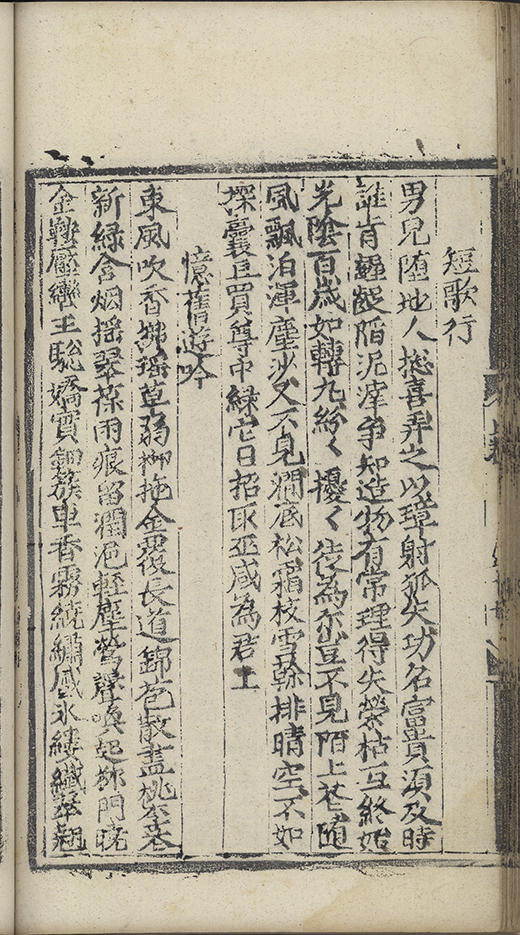 短歌行
男兒墮地人揔喜弄之以璋射弧矢功名富貴須及時
誰肯齷齪陷泥滓爭知造物有常理得失榮枯互終始
光陰百歲如轉九紛〱擾〱徒為尒豈不見陌上花隨
風飄泊渾塵沙又不見澗底松霜枝雪幹排晴空不如
探囊且買尊中綠它日招取巫咸為君上
憶舊遊吟
東風吹香拂瑤草弱柳拖金覆長道錦苞散盡桃李春
新綠含烟揺翠葆雨痕留潤浥輕塵鶯聲喚起都門曉
金鞍壓轡玉驄嬌寶鈿簇車香霧繞繡感氷縷纖翠翹